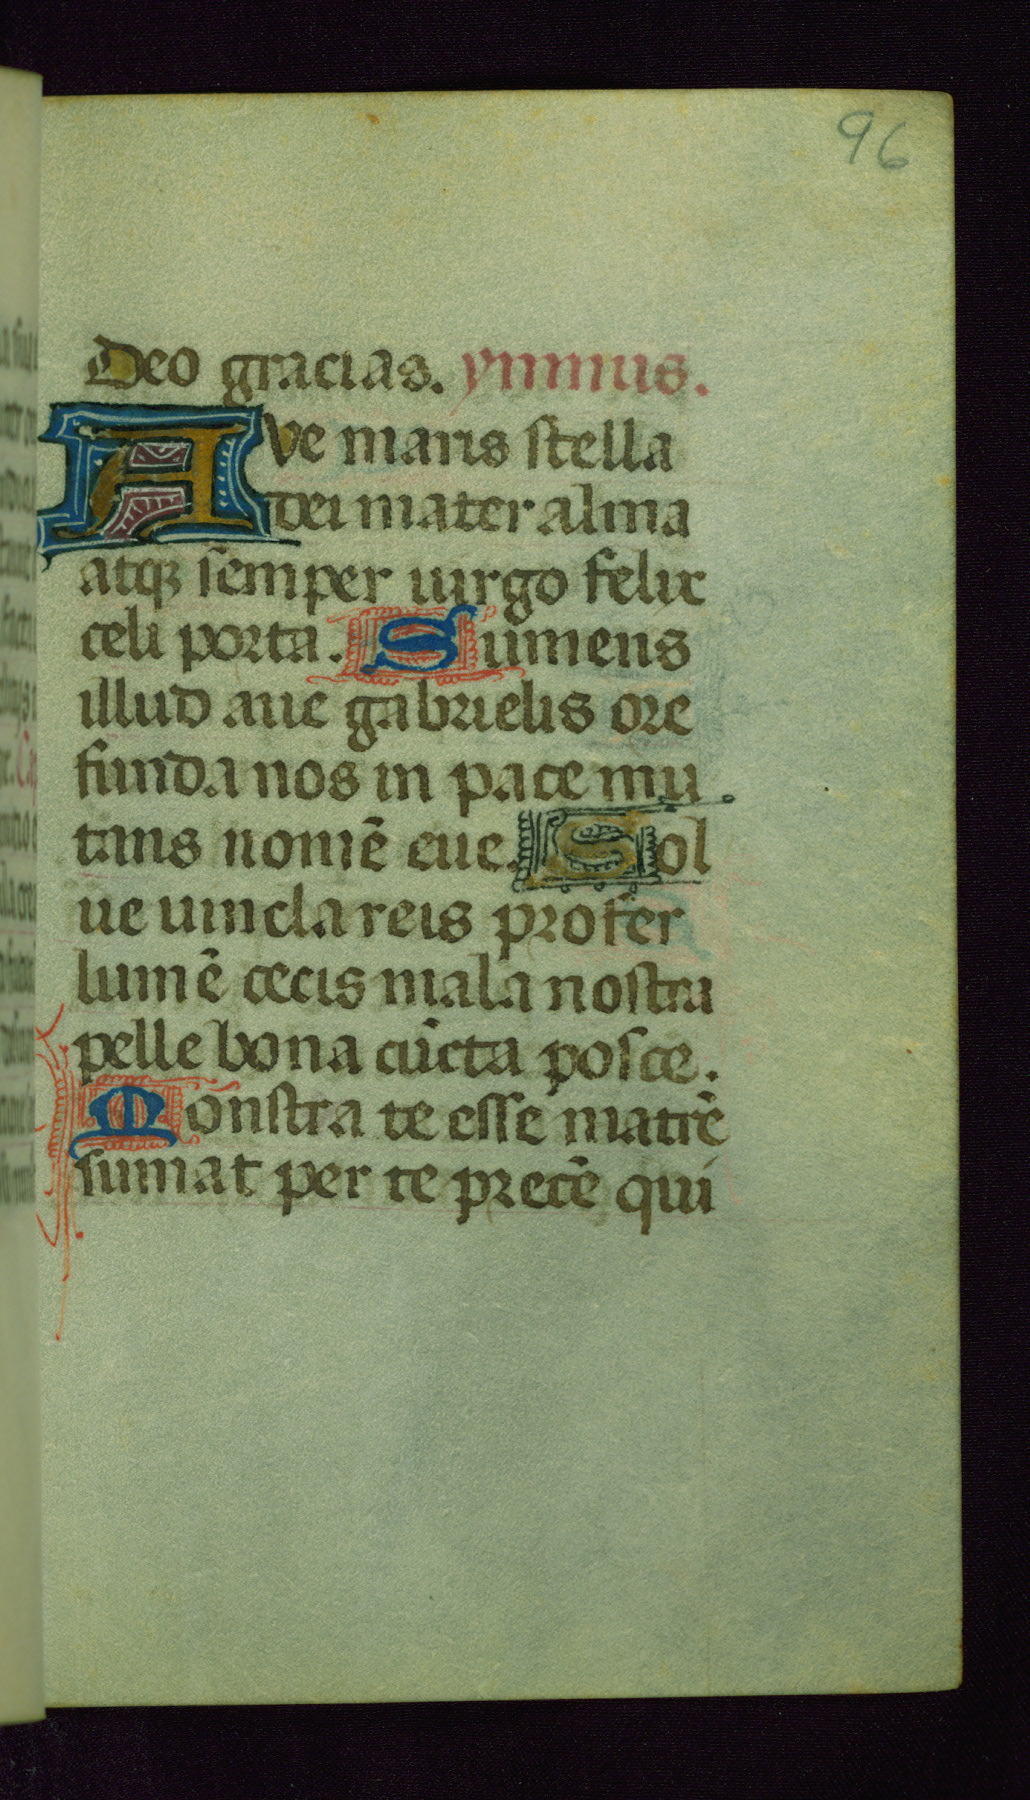 96
Deo gracias. ynmus.
Ave maris stella
dei mater alma
atqꝫ semper uirgo felix
celi porta. Sumens
illud aue gabrielis ore
funda nos in pace mu
tans nomē eue. Sol
ue uincla reis profer
lumē cecis mala nostra
pelle bona cūcta posce.
Monstra te esse matrē
sumat per te precē qui